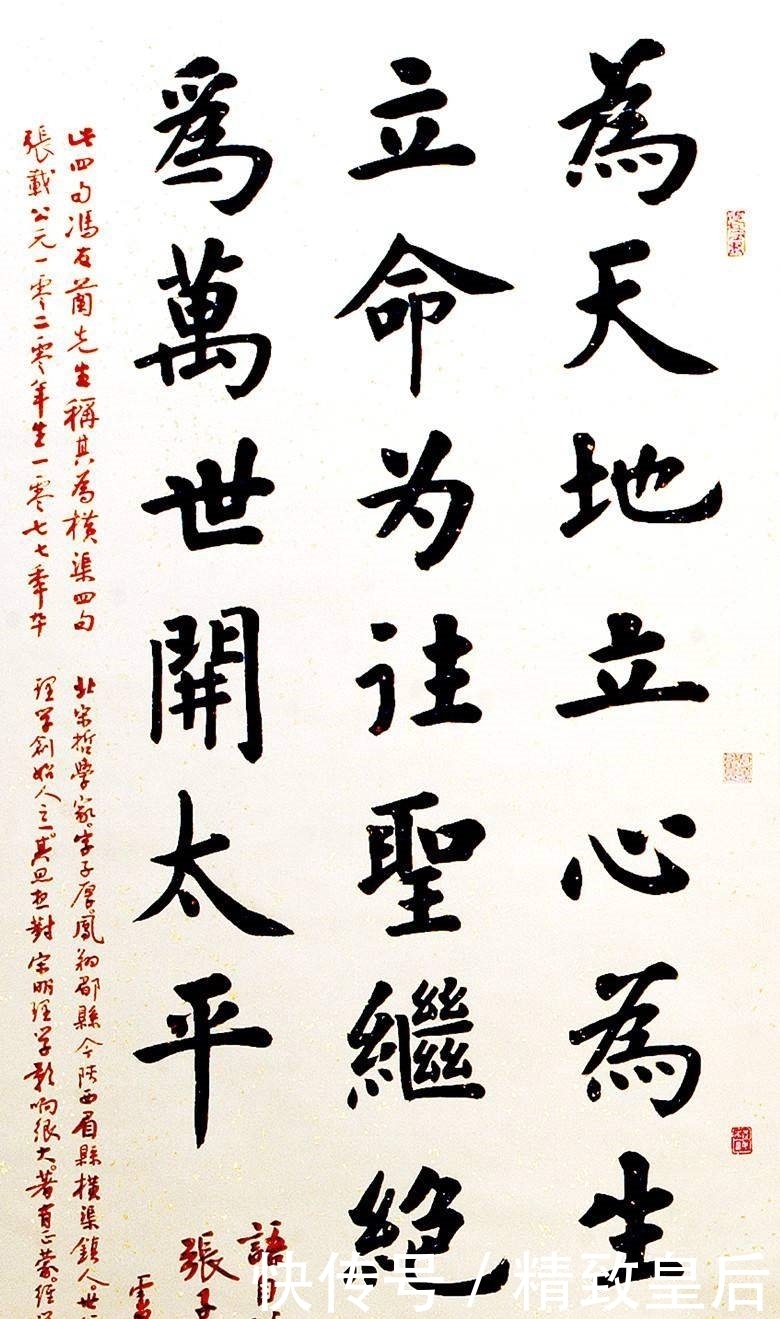 為天地立心為生
立命为往聖繼絕
爲萬世開太平
語自
張子
雪
此四句馮友蘭先生稱其為橫渠四句
張載公元一零二零年生一零七七年卒
北宋哲學家。字子厚鳳翔郿縣今陝西眉縣橫渠鎮人世
理学創始人之一。其思想對宋明理学影响很大。著有正蒙。經学
快传号 / 精致皇后